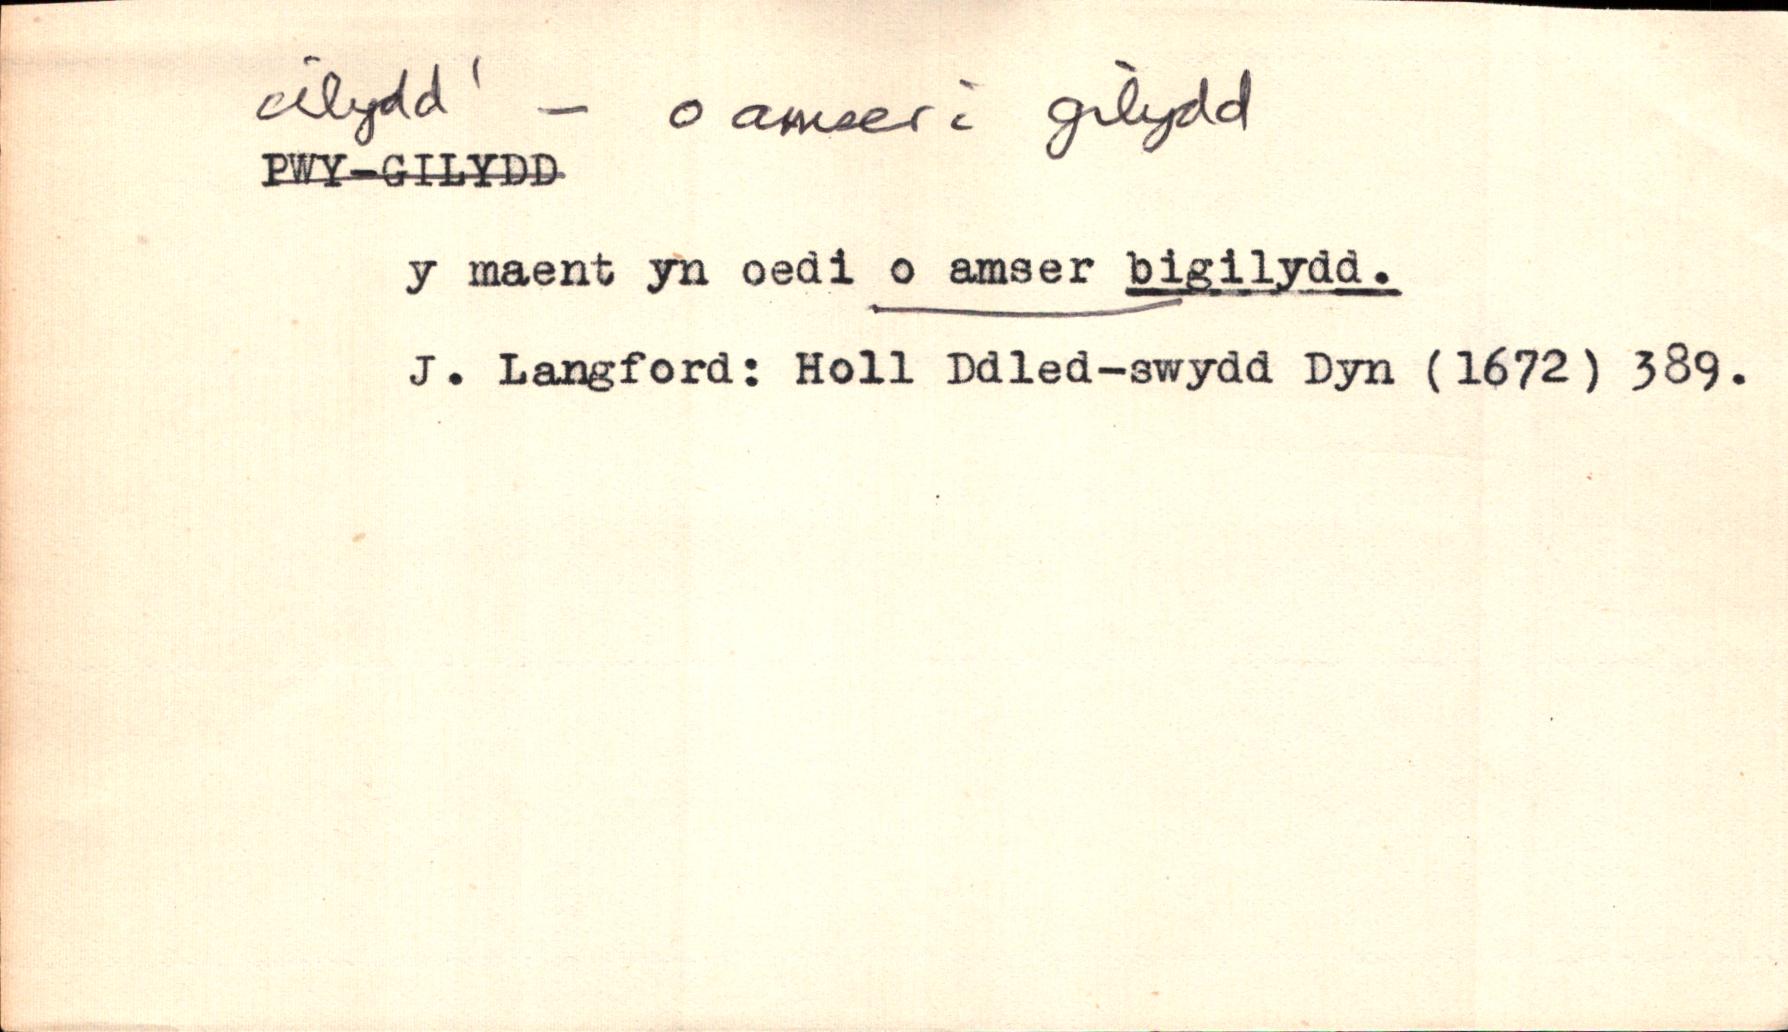 cilydd' – o amser i gilydd
PWY-GILYDD
y maent yn oedi o amser bigilydd.
J. Langford: Holl Ddled-swydd Dyn (1672) 389.